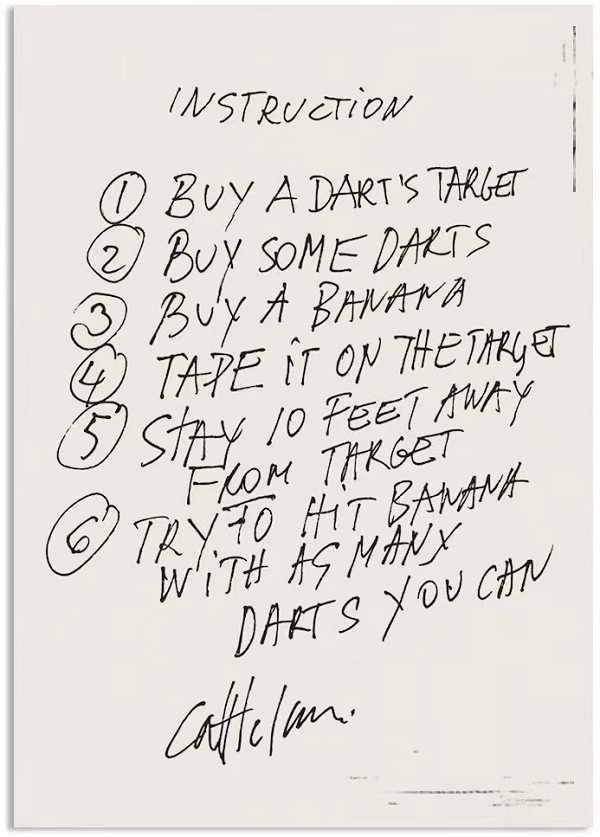 INSTRUCTION
1 BUY A DART'S TARGET
2 BUY SOME DARTS
3 BUY A BANANA
4 TAPE IT ON THE TARGET
5 STAY 10 FEET AWAY
FROM TARGET
6 TRY TO HIT BANANA
WITH AS MANY
DARTS YOU CAN
Cattelan.